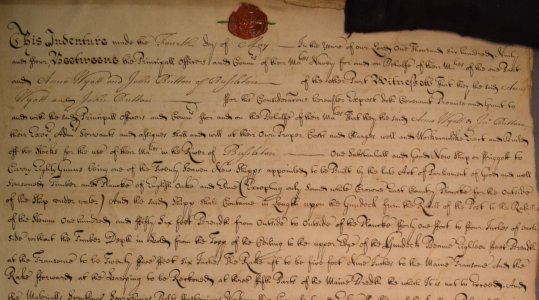 This Indenture made the Fourth day of May In the Yeare of our Lord One Thousand six hundred Ninty
and four Betweene the Principall Officers and Comrs of their Mats Navy for and on Behalfe of their Mats of the one Part
and Anne Wyatt and John Button of Bussleton of the other Part Witnesseth That they the said Anne
Wyatt and John Button for the Considerations hereafter Exprest doth Covenant Promise and Grant to
and with the said Principall Officers and Comrs for and on the Behalfe of their Mats That they the said Anne Wyatt & Jno Button
their Exers Admrs Servants and assignes shall and will at their Own Proper Costs and Charges well and Workmanlike Erect and Build
off the Stocks for the use of their Mats in the River of Bussleton One Substantiall and Good New Shipp Friggott to
Carry Eighty Gunns being one of the Twenty Seaven New Shipps appointed to be Built by the late Act of Parliament of Good and well
Seasoned Timber and Planke of English Oake and Elme
of the Shipp under water And the said Shipp shall Containe in Length upon the Gundeck from the Rabbit of the Post to the Rabbit
of the Stemm One hundred and fifty Six foot Breadth from Outside to Outside of the Planke forty One foot
side without the Timber Depth in Hold from the Topp of the Seeling to the upper Edge of the Gundeck Beame Eighteen foot Breadth
at the Transome to be Twenty five foot six Inches The Rake aft to be five foot Nine Inches to the Maine Transome And the
Rake forward at the Harping to be Reckoned at three fifth Parts of the Maine Breadth